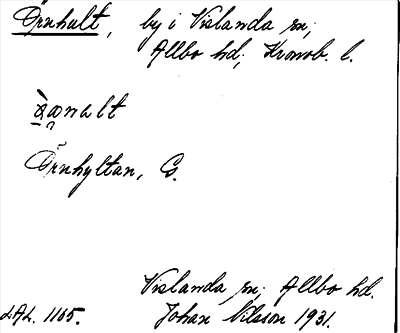 Örnhult, by i Vislanda sn;
Allbo hd; Kronob. l.
Örnhyltan, G.
Vislanda sn; Allbo hd.
LAL. 1165. Johan Nilsson 1931.